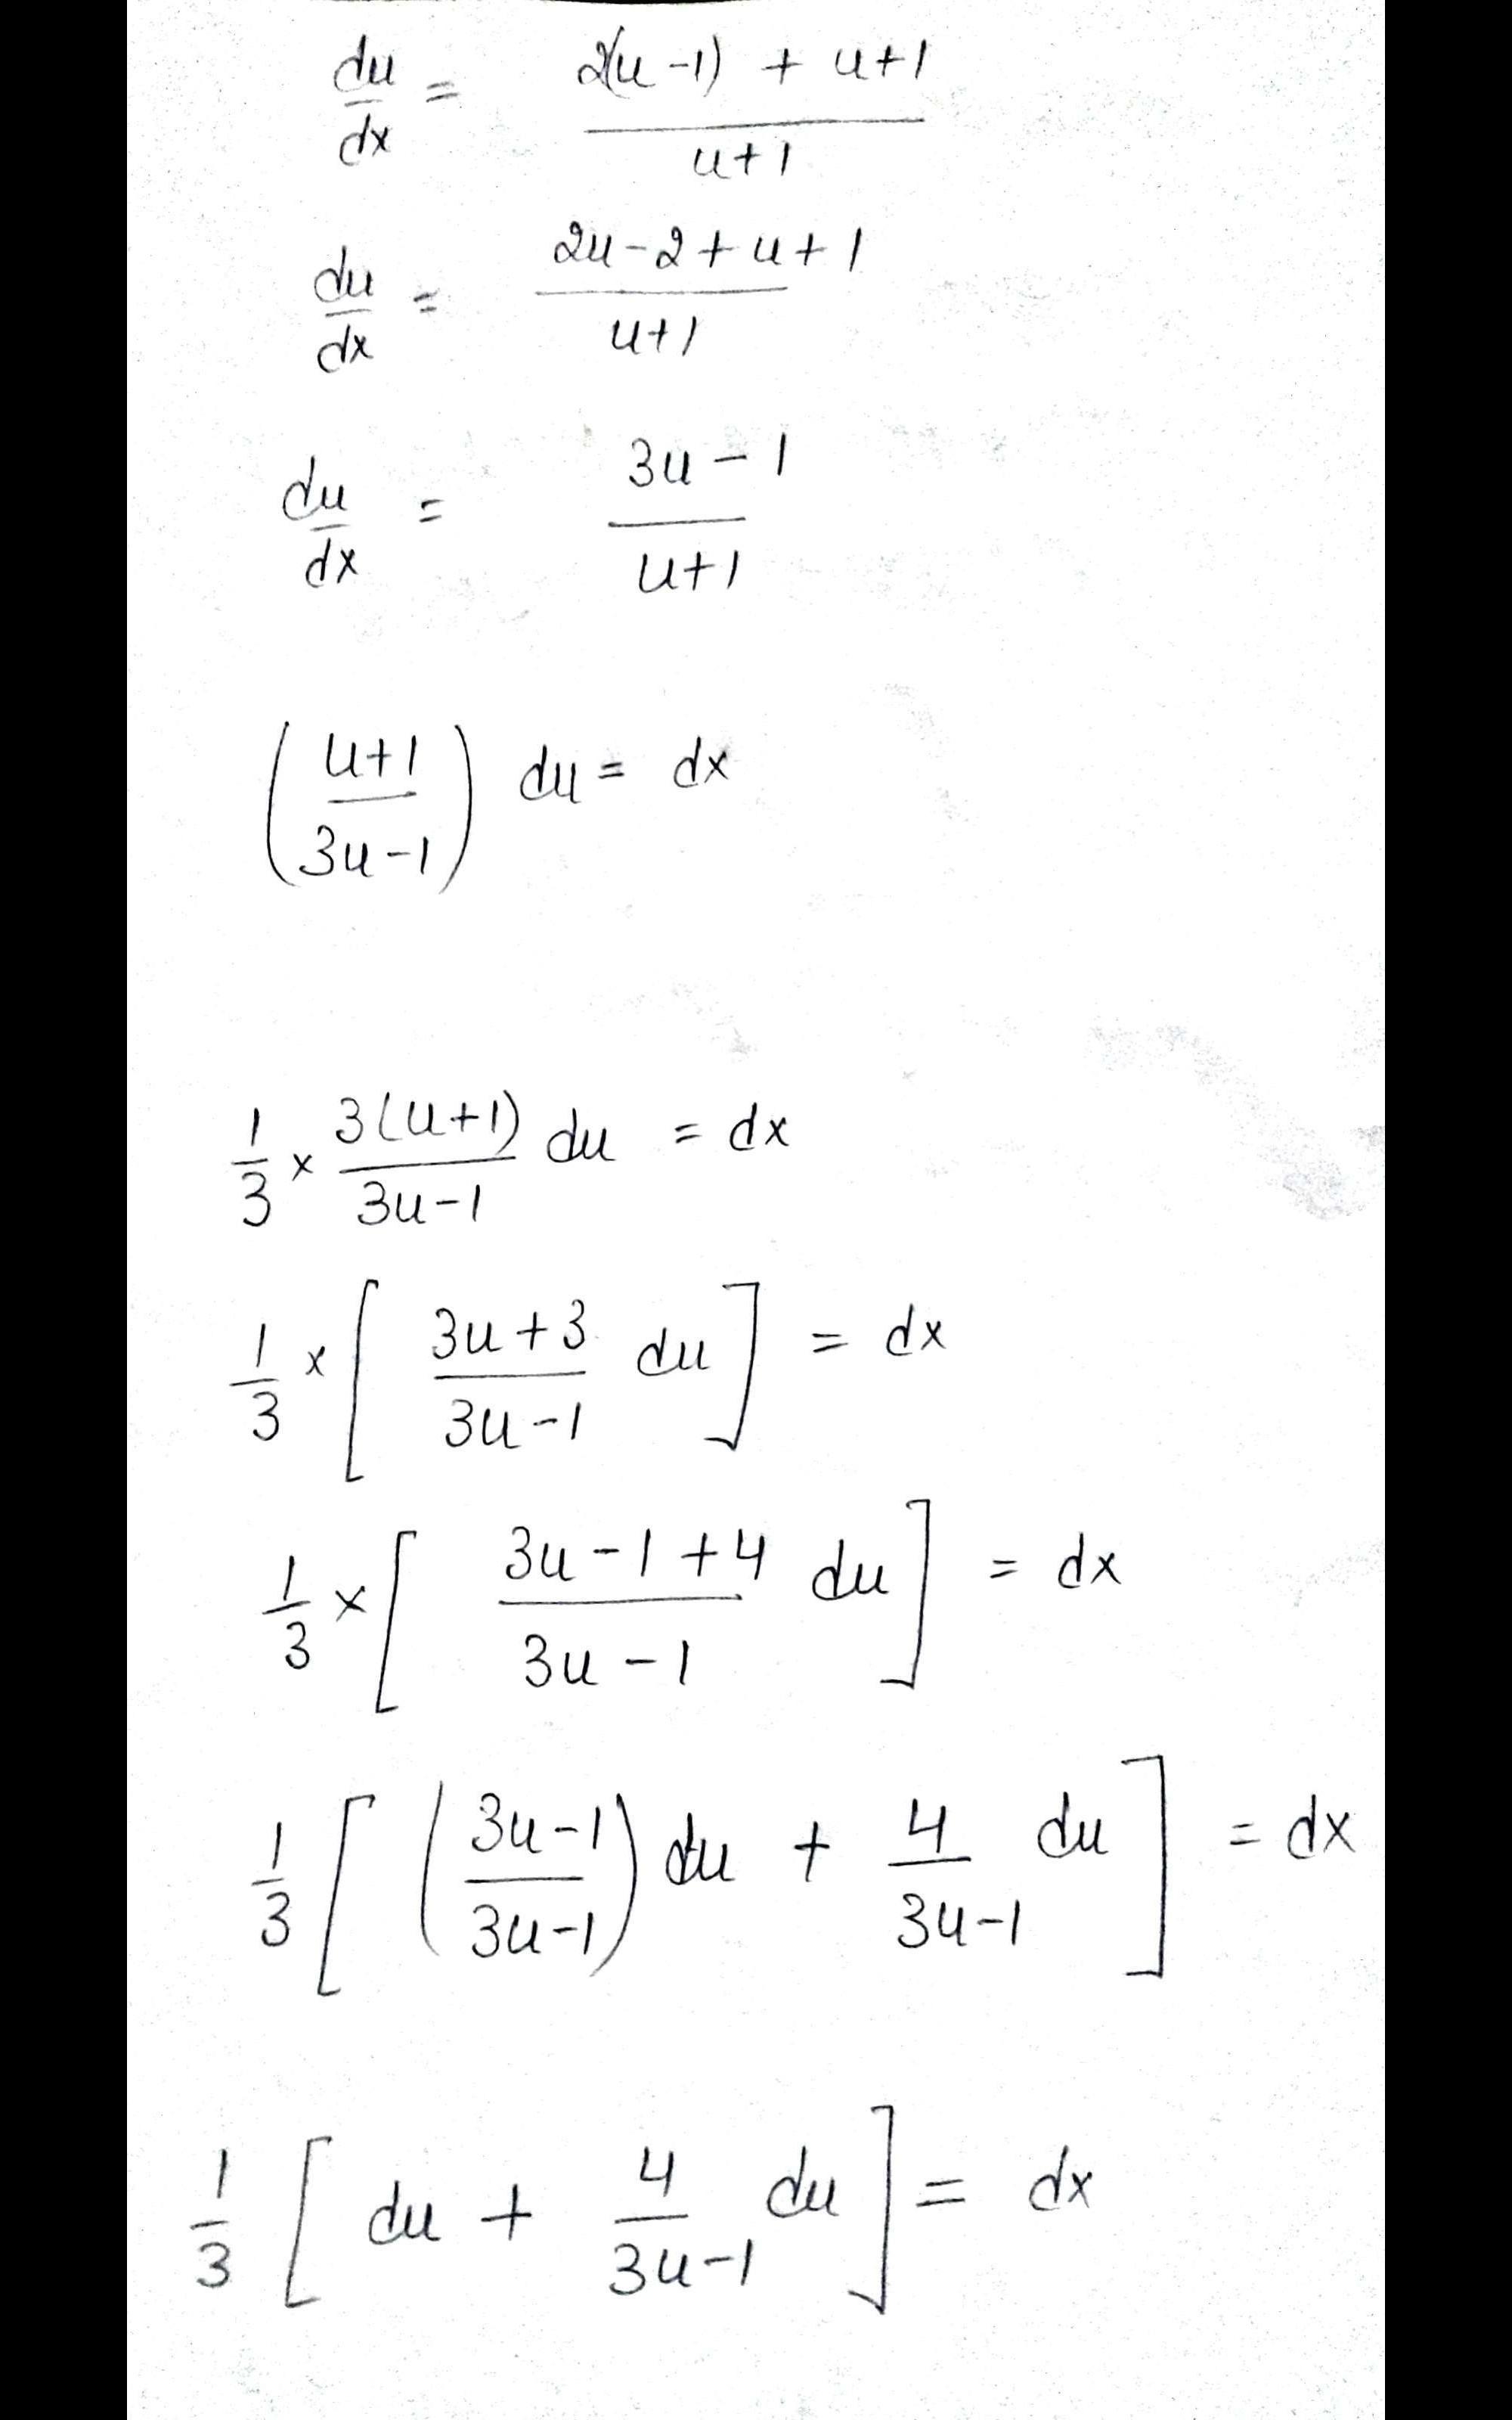 du/dx = (2(u-1) + u+1)/(u+1)
du/dx = (2u-2+u+1)/(u+1)
du/dx = (3u-1)/(u+1)
((u+1)/(3u-1)) du = dx
1/3 × (3(u+1))/(3u-1) du = dx
1/3 × [ (3u+3)/(3u-1) du ] = dx
1/3 × [ (3u-1+4)/(3u-1) du ] = dx
1/3 [ ((3u-1)/(3u-1)) du + 4/(3u-1) du ] = dx
1/3 [ du + 4/(3u-1) du ] = dx